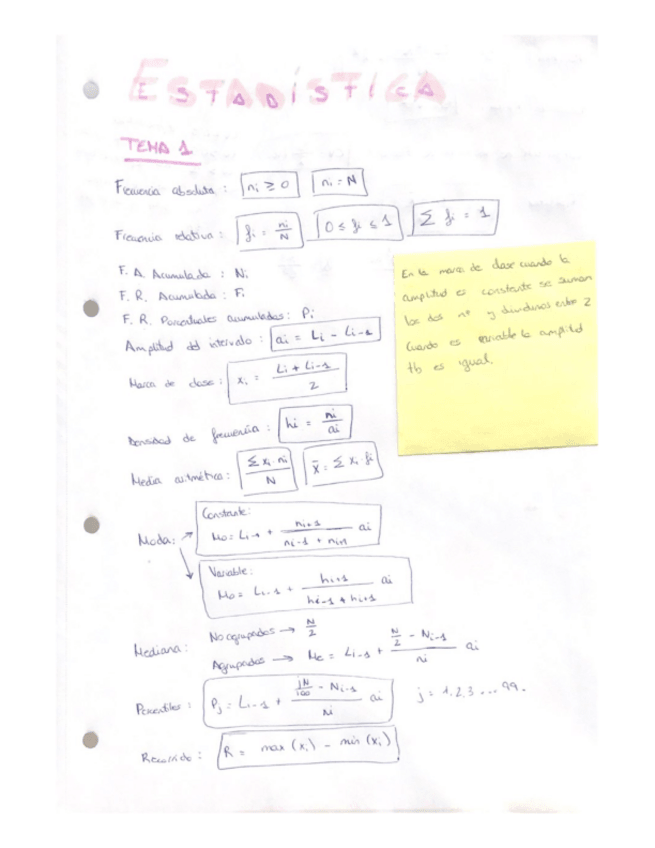 ESTADÍSTICA
TEMA 1
Frecuencia absoluta : ni ≥ 0 ni = N
Frecuencia relativa : fi = ni/N 0 ≤ fi ≤ 1 Σ fi = 1
F. A. Acumulada : Ni
F. R. Acumulada : Fi
F. R. Porcentuales acumuladas : Pi
Amplitud del intervalo : ai = Li - Li-1
Marca de clase : xi = (Li + Li-1)/2
Densidad de frecuencia : hi = ni/ai
Media aritmética : Σ xi · ni / N x̄ = Σ xi · fi
Moda :
Constante :
Mo = Li-1 + ni+1/(ni-1 + ni+1) ai
Variable :
Mo = Li-1 + hi+1/(hi-1 + hi+1) ai
Mediana :
No agrupados → N/2
Agrupados → Me = Li-1 + (N/2 - Ni-1)/ni ai
Percentiles : Pj = Li-1 + (jN/100 - Ni-1)/ni ai j = 1,2,3 ... 99.
Recorrido : R = max (xi) - min (xi)
En la marca de clase cuando la
amplitud es constante se suman
los dos nº y dividimos entre 2
Cuando es variable la amplitud
tb es igual.